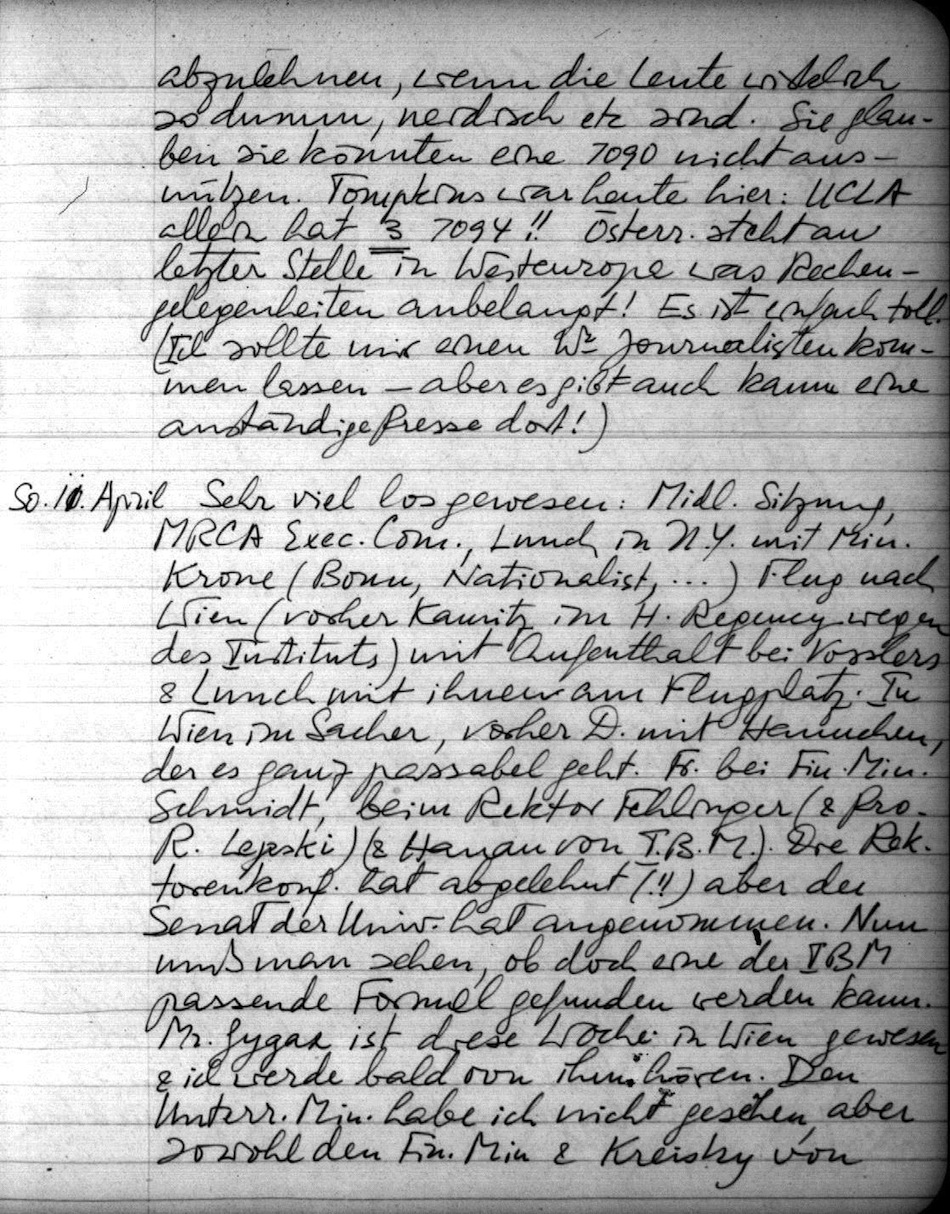 abzulehnen, wenn die Leute wirklich
so dumm, neidisch etc sind. Sie glau-
ben sie könnten eine 7090 nicht aus-
nützen. Tompkins war heute hier: UCLA
allein hat 3 7094!! Österr. steht an
letzter Stelle in Westeuropa was Rechen-
gelegenheiten anbelangt! Es ist einfach toll.
(Ich sollte mir einen Wr Journalisten kom-
men lassen – aber es gibt auch kaum eine
anständige Presse dort!)
So. 11. April Sehr viel los gewesen: Midl. Sitzung,
MRCA Exec. Com., Lunch in N.Y. mit Min.
Krone (Bonn, Nationalist, ...) Flug nach
Wien (vorher Kamitz im H. Regency wegen
des Instituts) mit Aufenthalt bei Vosslers
& Lunch mit ihnen am Flugplatz. In
Wien im Sacher, vorher D. mit Hannchen,
der es ganz passabel geht. Fr. bei Fin. Min.
Schmidt, beim Rektor Fehlinger (& Pro-
R. Lepski) (& Hanau von I.B.M.). Die Rek-
torenkonf. hat abgelehnt (!!) aber der
Senat der Univ. hat angenommen. Nun
muß man sehen, ob doch eine der IBM
passende Formel gefunden werden kann.
Mr. Gygax ist diese Woche in Wien gewesen
& ich werde bald von ihm hören. Den
Unterr. Min. habe ich nicht gesehen, aber
sowohl den Fin. Min & Kreisky von